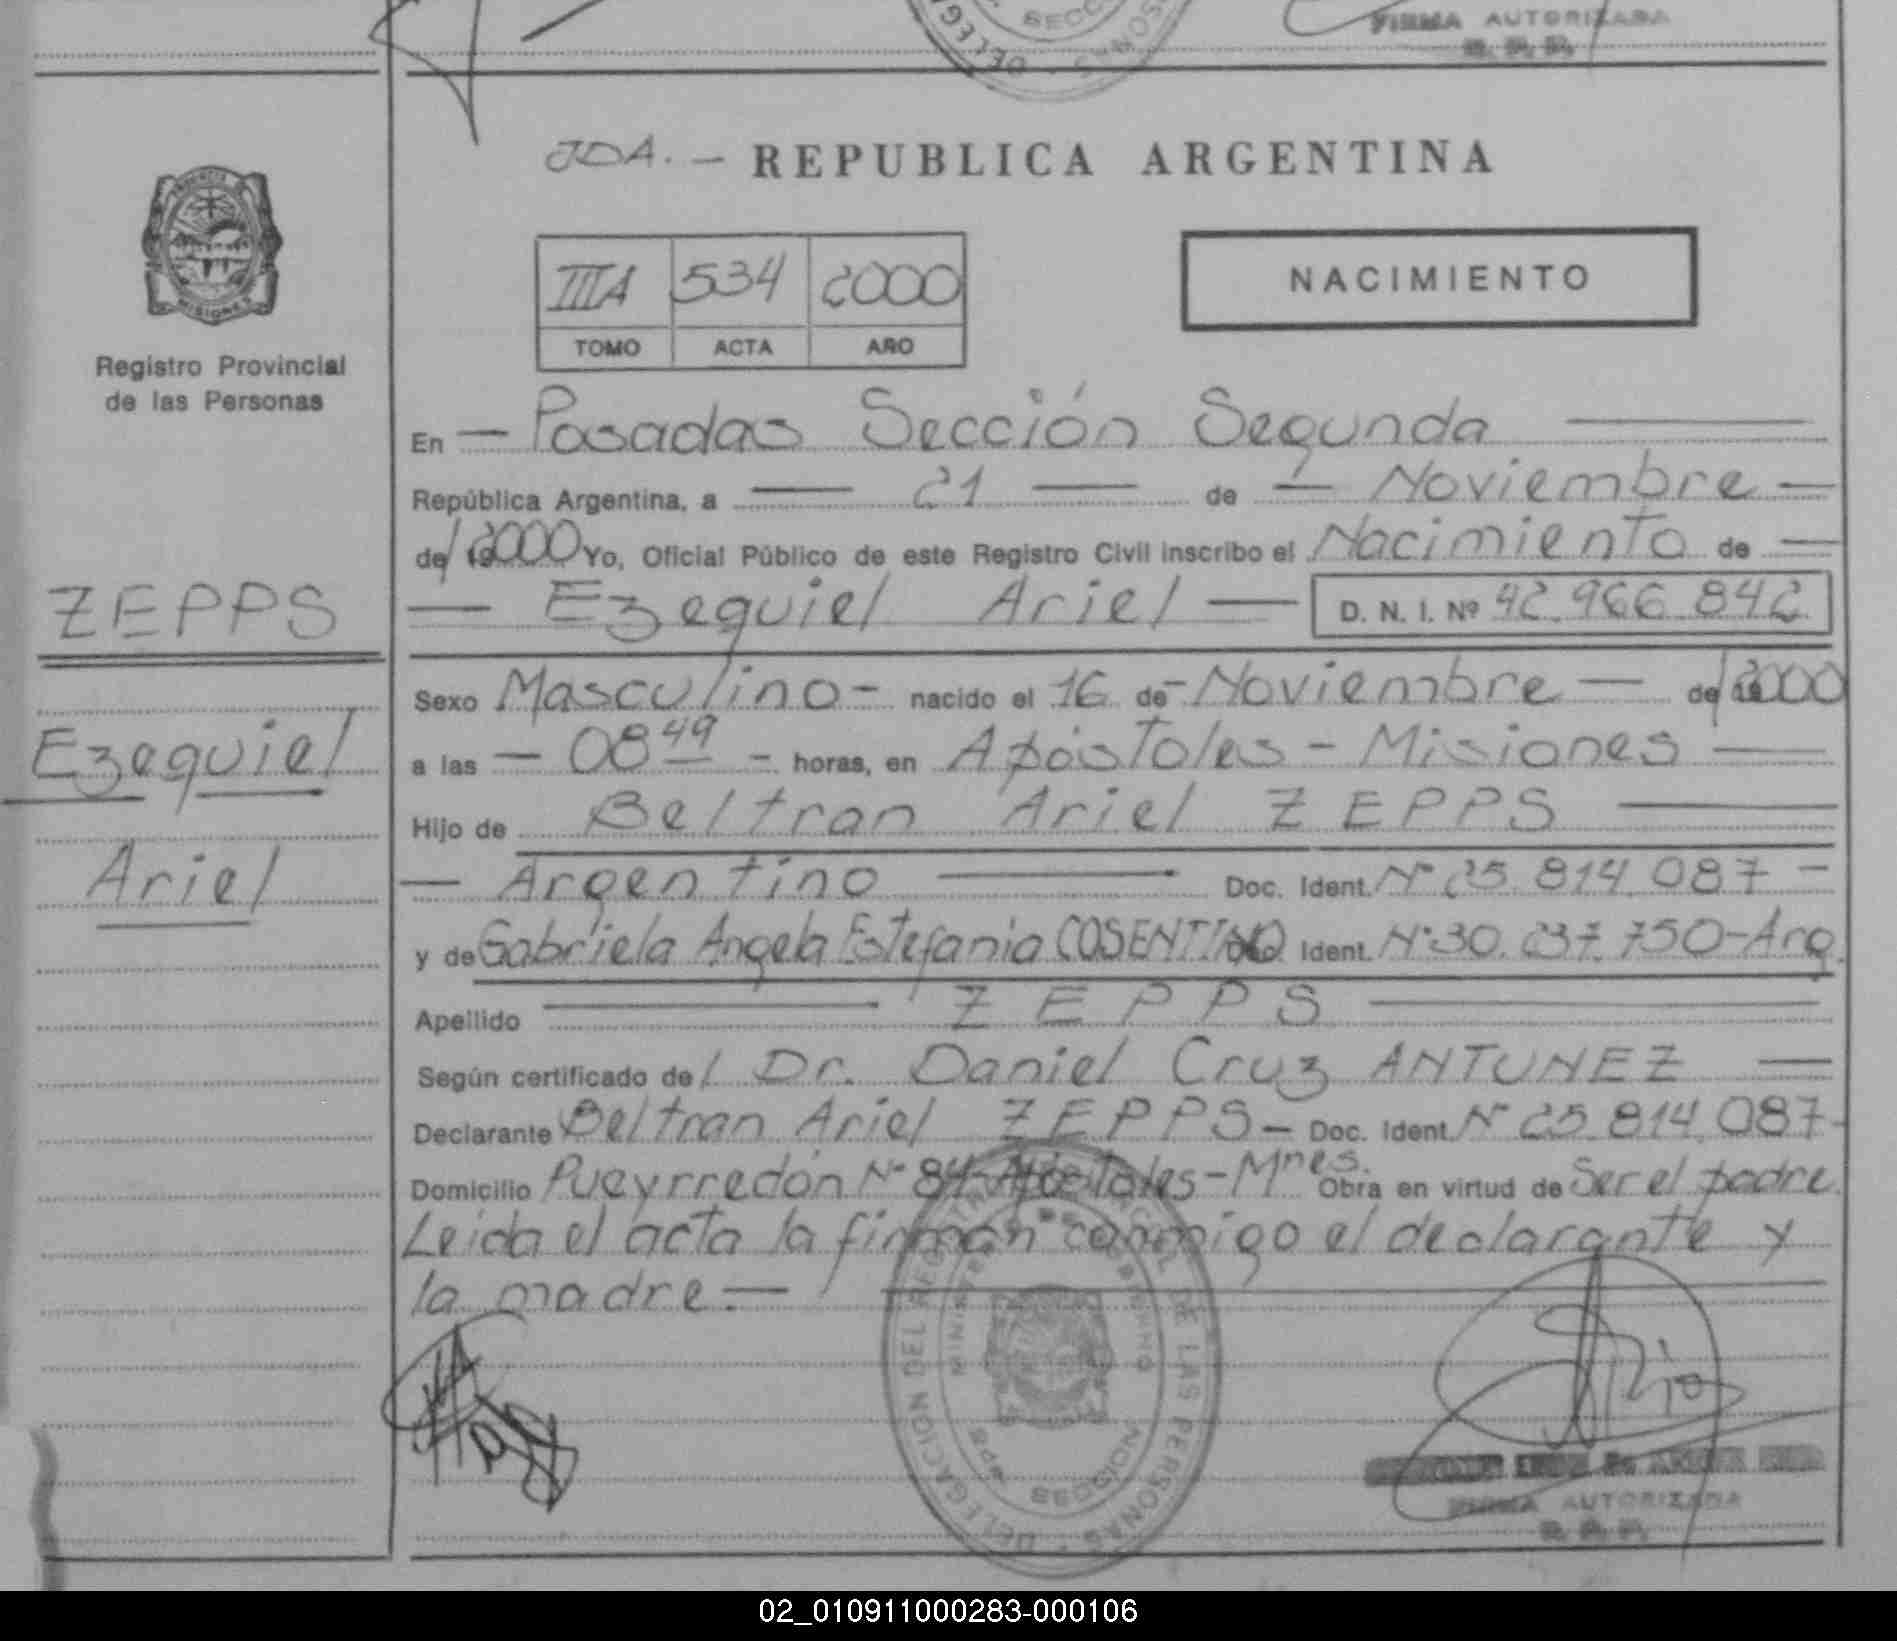 FIRMA AUTORIZADA
R. P. P.
JDA. - REPUBLICA ARGENTINA
IIIA 534 2000
TOMO ACTA AÑO
NACIMIENTO
PROVINCIA DE
MISIONES
Registro Provincial
de las Personas
ZEPPS
Ezequiel
Ariel
En — Posadas Sección Segunda —
República Argentina, a — 21 — de — Noviembre —
de/ 19 2000 Yo, Oficial Público de este Registro Civil inscribo el Nacimiento de —
— Ezequiel Ariel — D. N. I. Nº 42.966.842
Sexo Masculino - nacido el 16 de - Noviembre — de/ 19 2000
a las — 08 49 - horas, en Apóstoles - Misiones —
Hijo de Beltran Ariel ZEPPS —
— Argentino — Doc. Ident. Nº 25.814.087 -
y de Gabriela Angela Estefania COSENTINO Doc. Ident. Nº 30.237.750 - Arg.
Apellido — ZEPPS —
Según certificado de/ Dr. Daniel Cruz ANTUNEZ —
Declarante Beltran Ariel ZEPPS - Doc. Ident. Nº 25.814.087-
Domicilio Pueyrredón Nº 84 - Apóstoles - Mnes. Obra en virtud de Ser el padre.
Leida el acta la firman conmigo el declarante y
la madre. —
DELEGACION DEL REGISTRO PROVINCIAL DE LAS PERSONAS
MINISTERIO DE GOBIERNO
FIRMA AUTORIZADA
R. P. P.
02_010911000283-000106